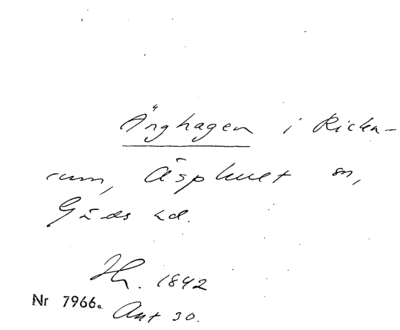 Änghagen i Ricka-
rum, Äsphult sn,
Gärds hd.
Hr. 1842
Nr 7966a
Ant 30.